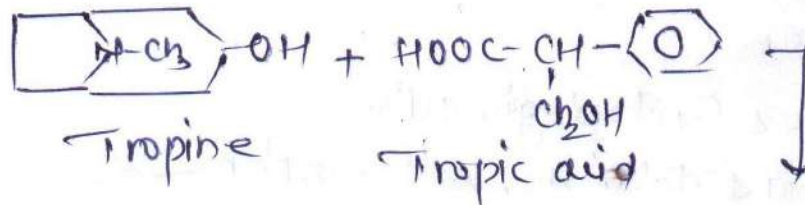 N-CH3 -OH + HOOC-CH-
CH2OH
Tropine Tropic acid